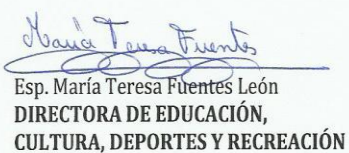 María Teresa Fuentes
Esp. María Teresa Fuentes León
DIRECTORA DE EDUCACIÓN,
CULTURA, DEPORTES Y RECREACIÓN